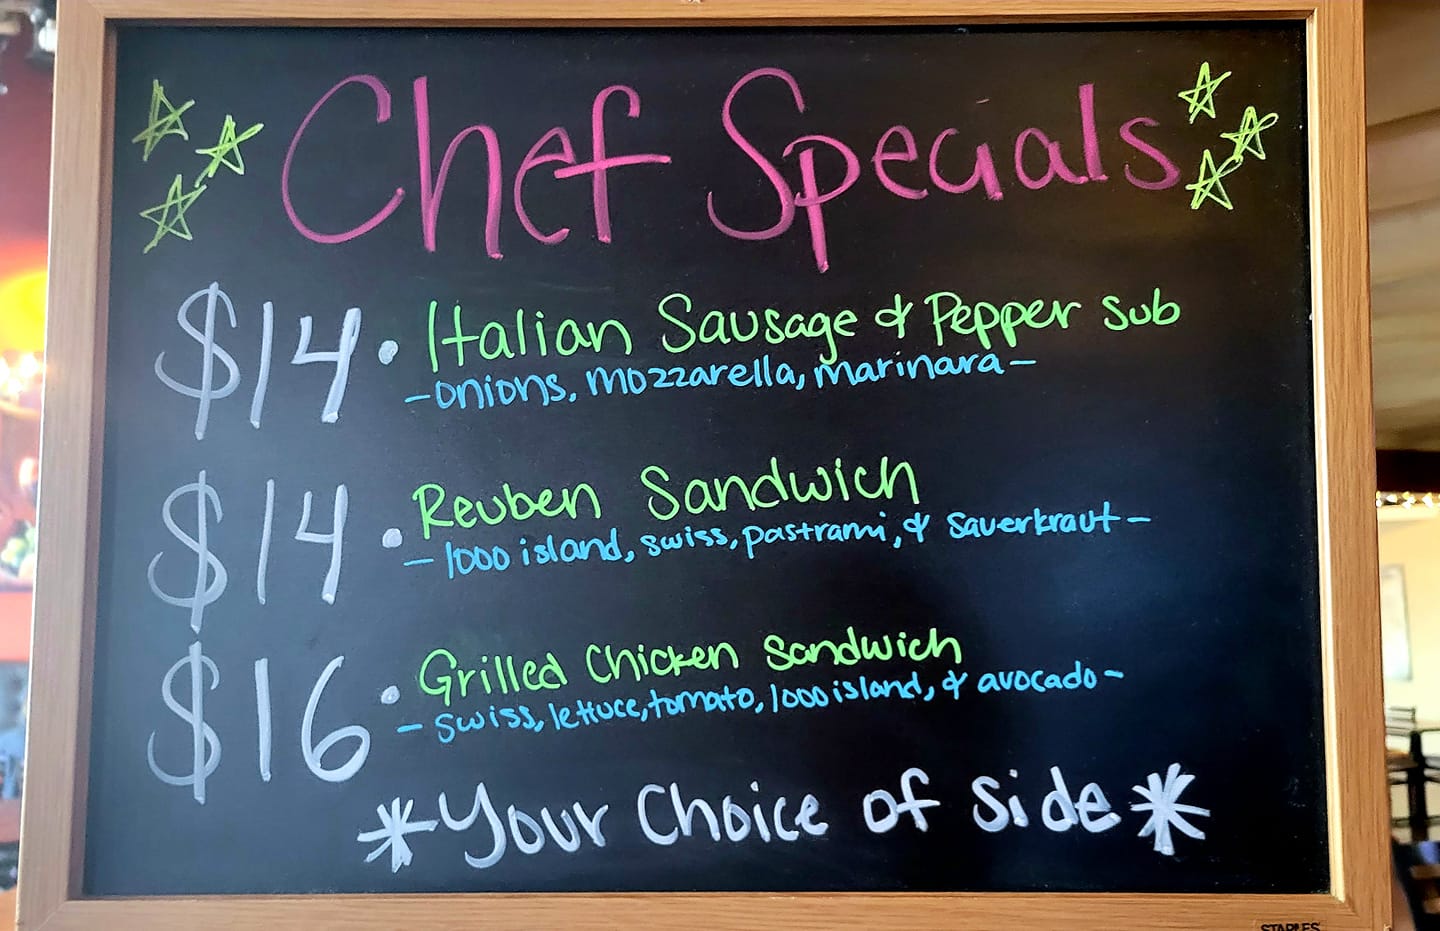 Chef Specials
$14 • Italian Sausage & Pepper Sub
- onions, mozzarella, marinara -
$14 • Reuben Sandwich
- 1000 island, swiss, pastrami, & sauerkraut -
$16 • Grilled Chicken Sandwich
- swiss, lettuce, tomato, 1000 island, & avocado -
*Your Choice of Side*
STAPLES